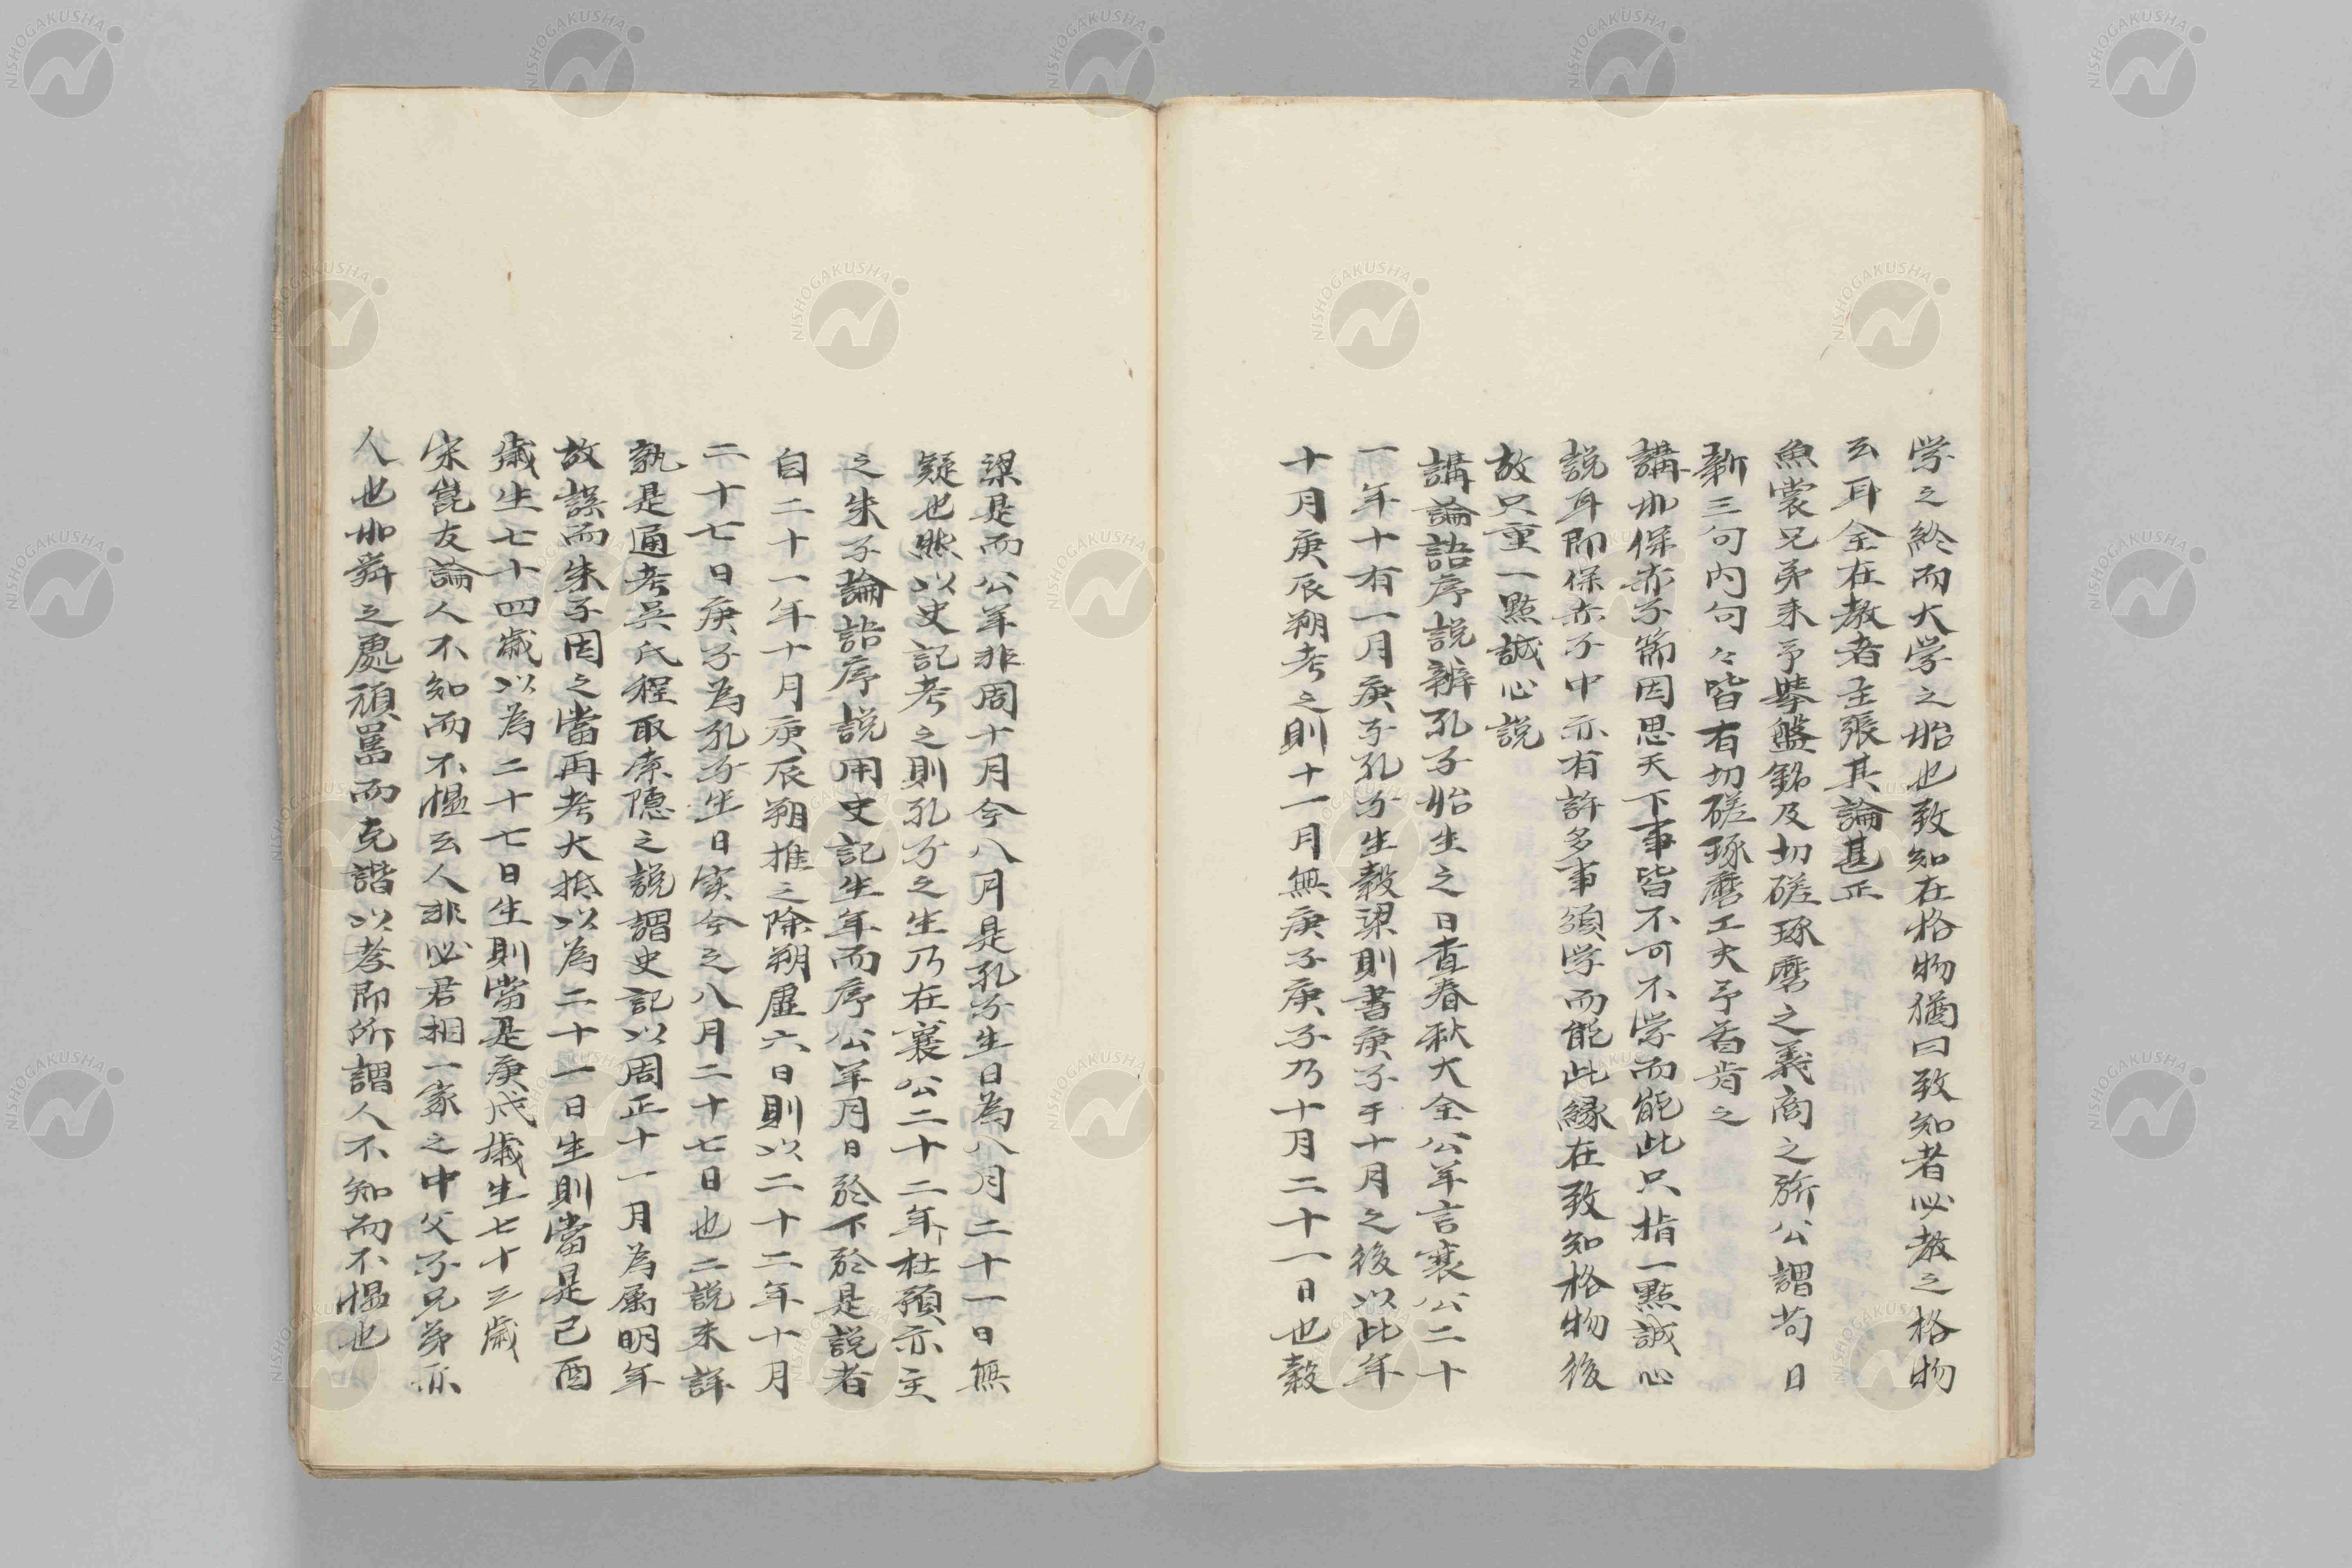 学之終而大学之始也致知在格物猶曰致知者必教之格物
云耳全在教者主張其論甚正
魚裳兄弟来予挙盤銘及切磋琢磨之義商之旂公謂苟日
新三句内句々皆有切磋琢磨工夫予首肯之
講如保赤子節因思天下事皆不可不学而能此只指一點誠心
説耳即保赤子中亦有許多事須学而能此縁在致知格物後
故只重一點誠心説
講論語序説辨孔子始生之日査春秋大全公羊言襄公二十
一年十有一月庚子孔子生穀梁則書庚子于十月之後以此年
十月庚辰朔考之則十一月無庚子庚子乃十月二十一日也穀
梁是而公羊非周十月今八月是孔子生日為八月二十一日無
疑也然以史記考之則孔子之生乃在襄公二十二年杜預亦主
之朱子論語序説用史記生年而序公羊月日於下於是説者
自二十一年十月庚辰朔推之除朔虚六日則以二十二年十月
二十七日庚子為孔子生日実今之八月二十七日也二説未詳
孰是通考吴氏程取索隠之説謂史記以周正十一月為属明年
故誤而朱子因之當再考大抵以為二十一日生則當是己酉
歳生七十四歳以為二十七日生則當是庚戌歳生七十三歳
宋崑友論人不知而不慍云人非必君相一家之中父子兄弟亦
人也如舜之處頑嚚而克諧以孝即所謂人不知而不慍也
NISHOGAKUSHA